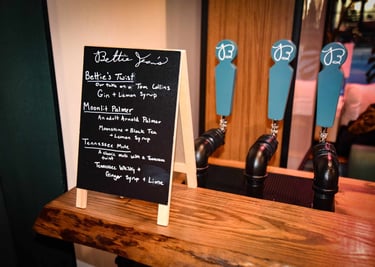 Bettie Jean's
Bettie's Twist
Our take on a Tom Collins
Gin + Lemon Syrup
Moonlit Palmer
An adult Arnold Palmer
Moonshine + Black Tea
+ Lemon Syrup
Tennessee Mule
A classic mule with a Tennessee
twist
Tennessee Whisky +
Ginger Syrup + Lime
B
B
B